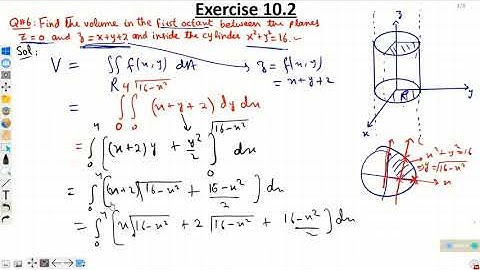 Exercise 10.2
Q#6: Find the volume in the first octant between the planes
z=0 and z=x+y+2 and inside the cylinder x²+y²=16.
Sol:
V = ∬ f(x,y) dA → z = f(x,y)
R
= x+y+2
= ∫₀⁴ ∫₀^√(16-x²) (x+y+2) dy dx
= ∫₀⁴ [(x+2)y + y²/2]₀^√(16-x²) dx
= ∫₀⁴ [(x+2)√(16-x²) + (16-x²)/2] dx
= ∫₀⁴ [x√(16-x²) + 2√(16-x²) + (16-x²)/2] dx
z
R
y
x
x²+y²=16
⇒ y=√(16-x²)
x